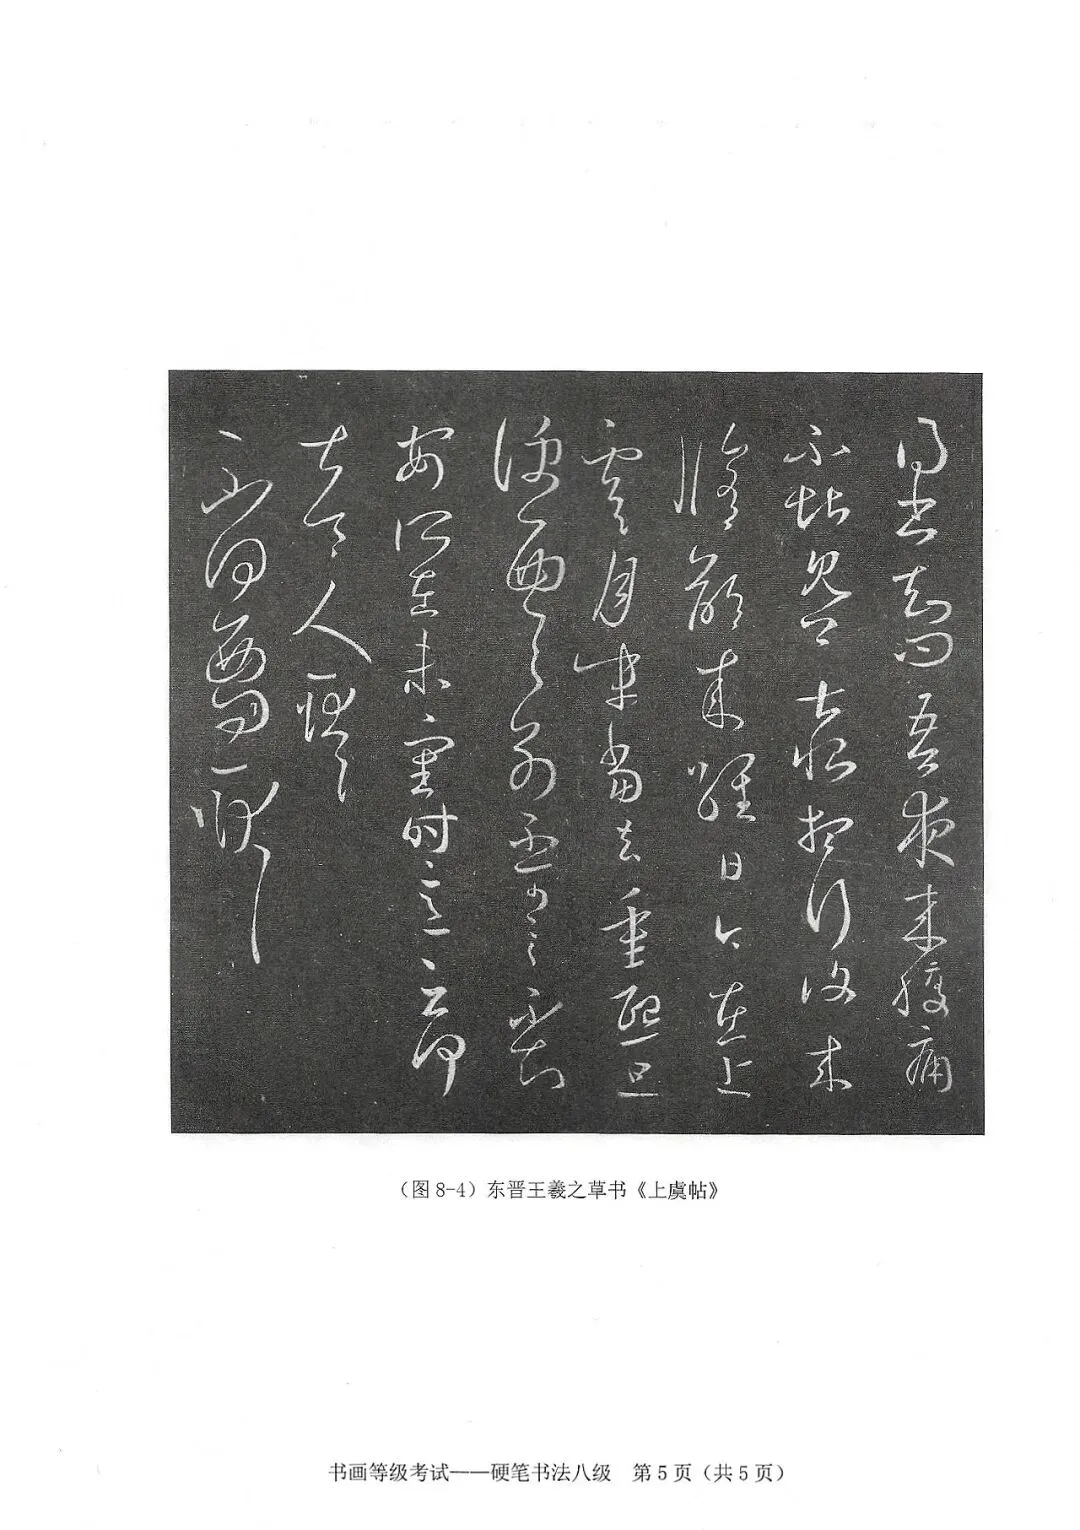 得書知問吾夜來腹痛
不堪見卿甚恨想行復來
脩齡來經日今在上
虞月末當去重熙旦
便西與別不可言不知
安所在未審時意云何
甚令人耿耿
(图 8-4) 东晋王羲之草书《上虞帖》
书画等级考试——硬笔书法八级 第 5 页（共 5 页）